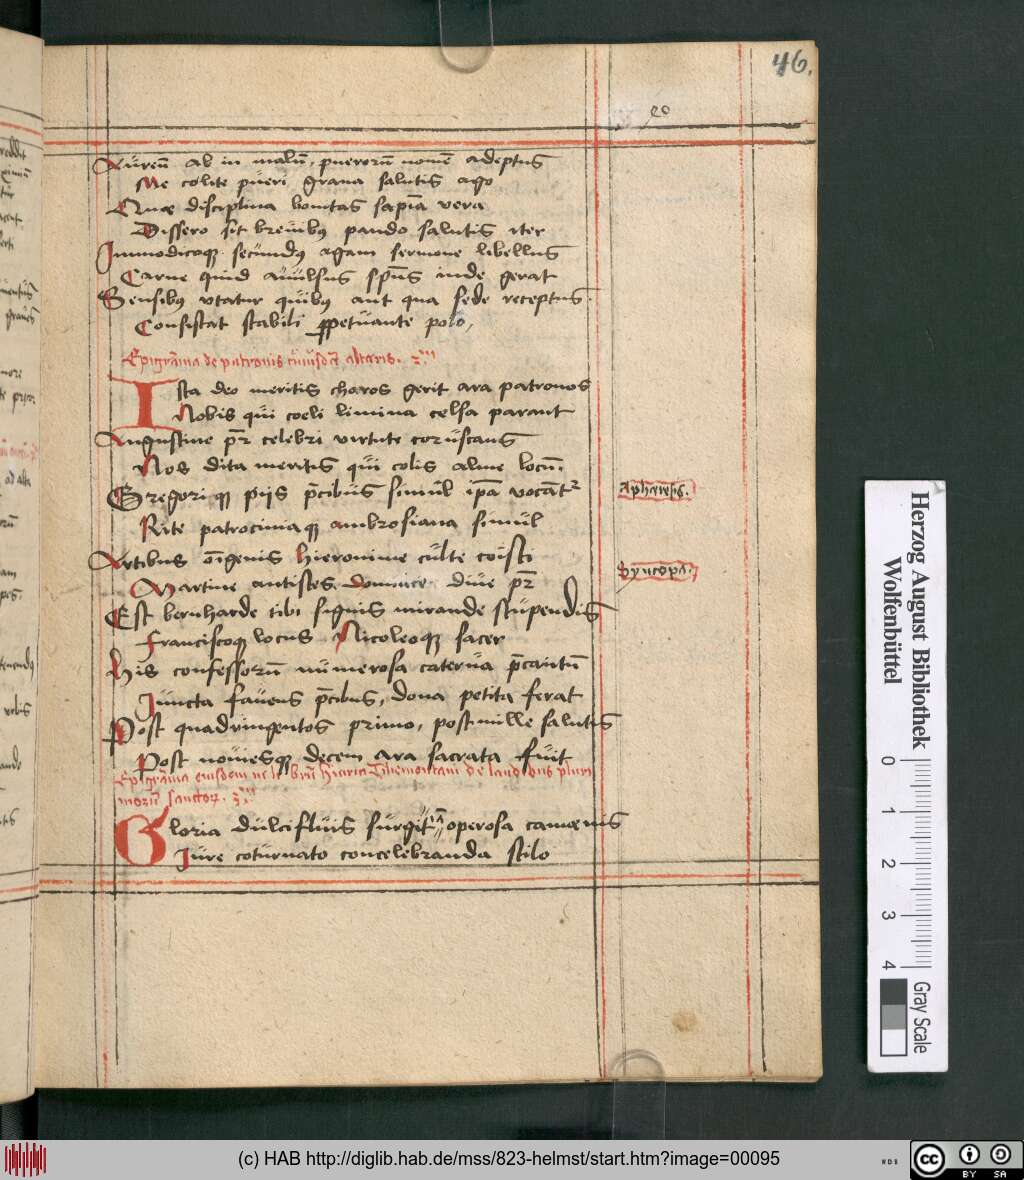 46.
20
Aureū ab in malū, puerorū nomē adeptus
Me colite pueri grana salutis ago
Quae disciplina bonitas sapīa vera
Dissero sit breuibꝰ pando salutis iter
Immodicoqꝫ secundꝰ agam sermone libellus
Carne quid auulsus spūs inde gerat
Sensibꝰ vtatur quibꝰ aut qua sede receptus
Consistat stabili ꝑpetuante polo,
Epigrāma de patronis cuiusdā altaris.
Ista deo meritis charos gerit ara patronos
Nobis qui coeli limina celsa parant
Augustine pr̄ celebri virtute coruscans
Nos dita meritis qui colis alme locū.
Gregoriqꝫ pijs p̄cibus simul ip̄a vocāt
Rite patrociniaqꝫ ambrosiana simul
aphaeresis.
Artibus oīgenis hieronime culte coisti
Martine antistes dominice diue pr̄
Syncopa.
Est bernharde tibi signis mirande stupendis
Franciscoqꝫ locus Nicoleoqꝫ sacer
His confessorū numerosa caterua p̄cantū
Iuncta fauens p̄cibus, dona petita ferat
Post quadringentos primo, post mille salutis
Post nouiesqꝫ decem ara sacrata fuit
Epigrāma eiusdem de laudibus pluri
morū sanctoꝝ.
Gloria dulcifluis surgit operosa camoenis
Iure coturnato concelebranda stilo
Herzog August Bibliothek
Wolfenbüttel
0 1 2 3 4
Gray Scale
(c) HAB http://diglib.hab.de/mss/823-helmst/start.htm?image=00095
WDB
cc
BY SA